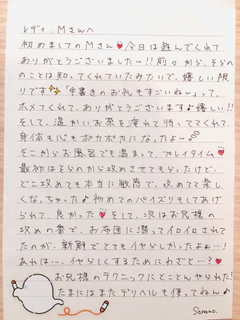 レディ、Mさんへ
初めましてのMさん❤今日は遊んでくれて
ありがとうございましたー!!前々から、そらの
のことは知ってくれていたみたいで、嬉しい限
りです「手書きのお礼もすごいねー」って、
ホメてくれて、ありがとうございます♪嬉しい!!
そして、温かいお茶を淹れて待っててくれて、
身体も心もポカポカになったよー
そこからお風呂でも温まって、プレイタイム❤
最初はそらのから攻めさせてもらったけど、
どこ攻めても本当に敏感で、攻めてて楽し
くなっちゃった♪初めてのパイズリもしてあげ
られて、良かった❤そして、次はお兄様の
攻めの番で、お布団に移ってイロイロされて
たのが、新鮮でとてもイヤらしかったよぉー!
あれは…、イヤらしくするためにわざと…?❤
お兄様のテクニックにとことんやられた!
たまにはまたデリヘルも使ってねん♪
Sorano.